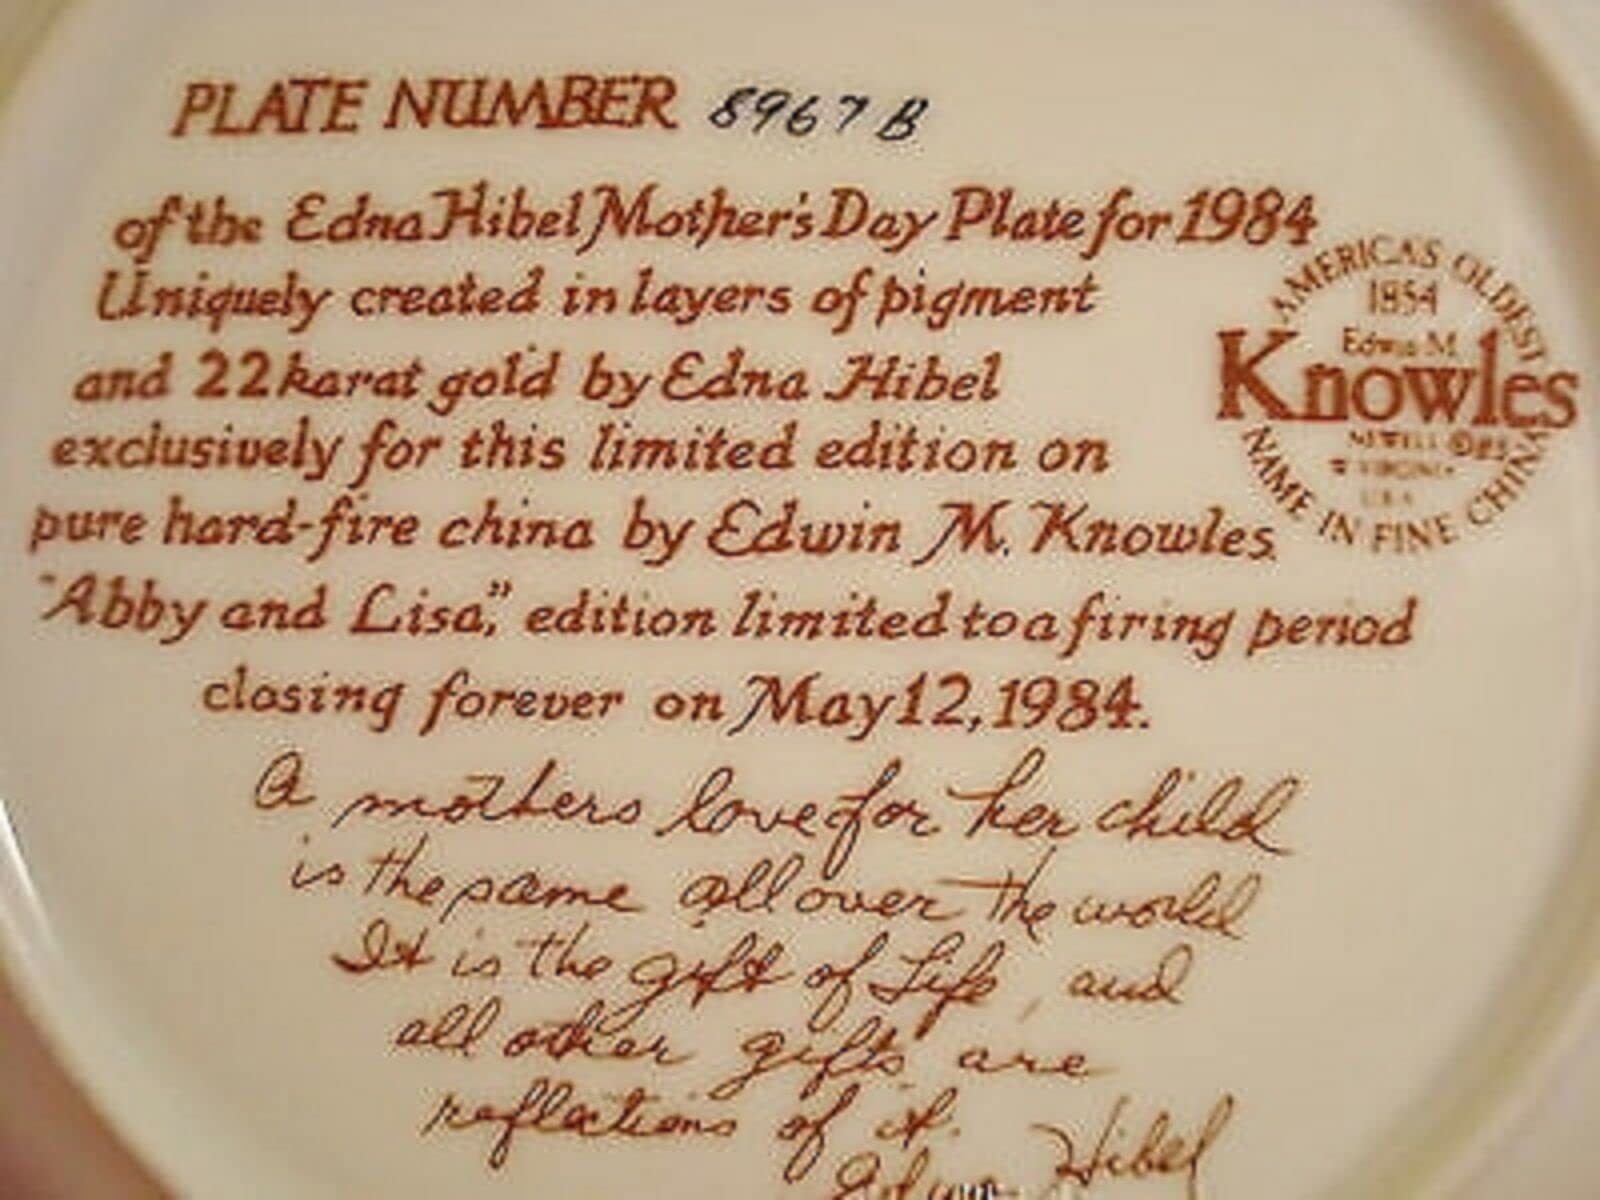 PLATE NUMBER 8967 B
of the Edna Hibel Mother's Day Plate for 1984
Uniquely created in layers of pigment
and 22 karat gold by Edna Hibel
exclusively for this limited edition on
pure hard-fire china by Edwin M. Knowles.
"Abby and Lisa," edition limited to a firing period
closing forever on May 12, 1984.
A mothers love for her child
is the same all over the world
It is the gift of Life, and
all other gifts are
reflections of it.
Edna Hibel
AMERICA'S OLDEST
1854
Edwin M.
Knowles
NEWELL
VIRGINIA
U.S.A.
NAME IN FINE CHINA